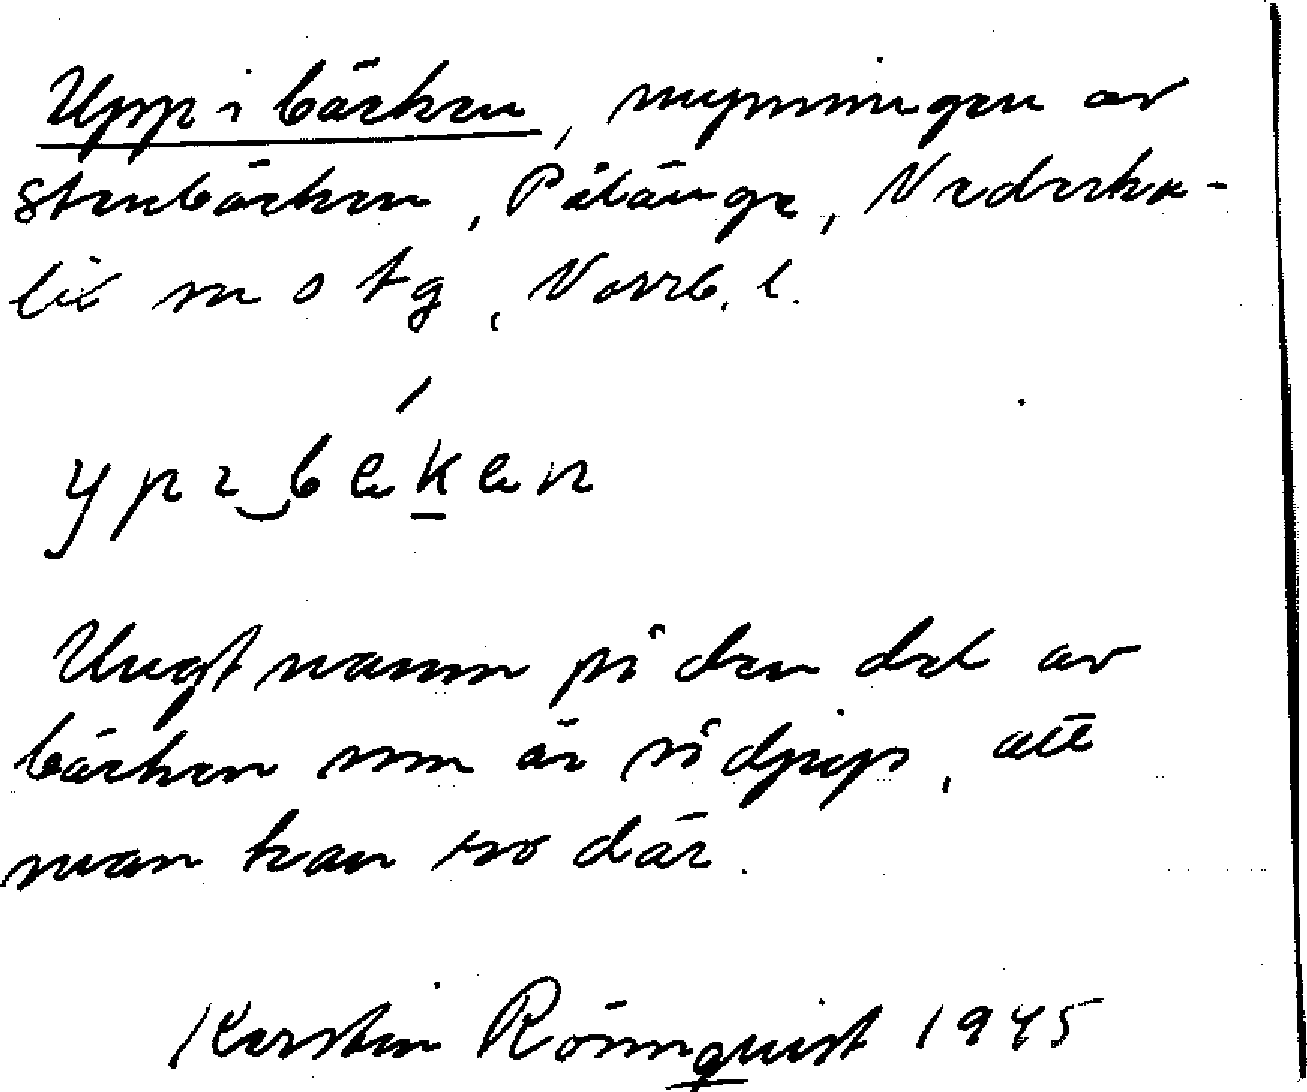 Upp i bäcken, mynningen av
Stenbäcken, Pålänge, Nederka-
lix sn o tg, Norrb. l.
Ungt namn på den del av
bäcken som är så djup, att
man kan ro där.
Kerstin Rönnquist 1945